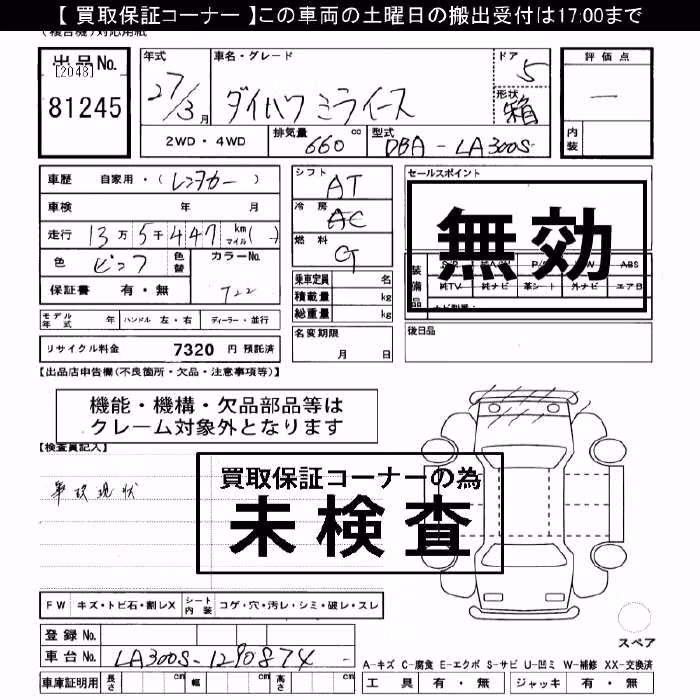 【 買取保証コーナー 】この車両の土曜日の搬出受付は17:00まで
出品No.
[2048]
81245
年式
27/3月
車名・グレード
ダイハツ ミライース
ドア
5
形状
箱
評価点
―
内装
2WD・4WD
排気量
660cc
型式
DBA - LA300S
車歴 自家用・(レンタカー)
車検 年 月
走行 13万5千447 km マイル( )
色 ピンク 色替
カラーNo.
T22
保証書 有・無
シフト AT
冷房 AC
燃料 G
乗車定員 名
積載量 kg
総重量 kg
セールスポイント
無効
装備品
ABS
純TV 純ナビ 革シート 外ナビ エアB
モデル年式 年 ハンドル 左・右 ディーラー・並行
リサイクル料金 7320 円 預託済
名変期限
月 日
後日品
【出品店申告欄(不良箇所・欠品・注意事項等)】
機能・機構・欠品部品等は
クレーム対象外となります
【検査員記入】
事故現状
買取保証コーナーの為
未検査
FW キズ・トビ石・割レX シート内装 コゲ・穴・汚レ・シミ・破レ・スレ
登録No.
車台No. LA300S-1290874
車庫証明用 長さ cm 幅 cm 高さ cm
スペア
A-キズ C-腐食 E-エクボ S-サビ U-凹ミ W-補修 XX-交換済
工具 有・無 ジャッキ 有・無